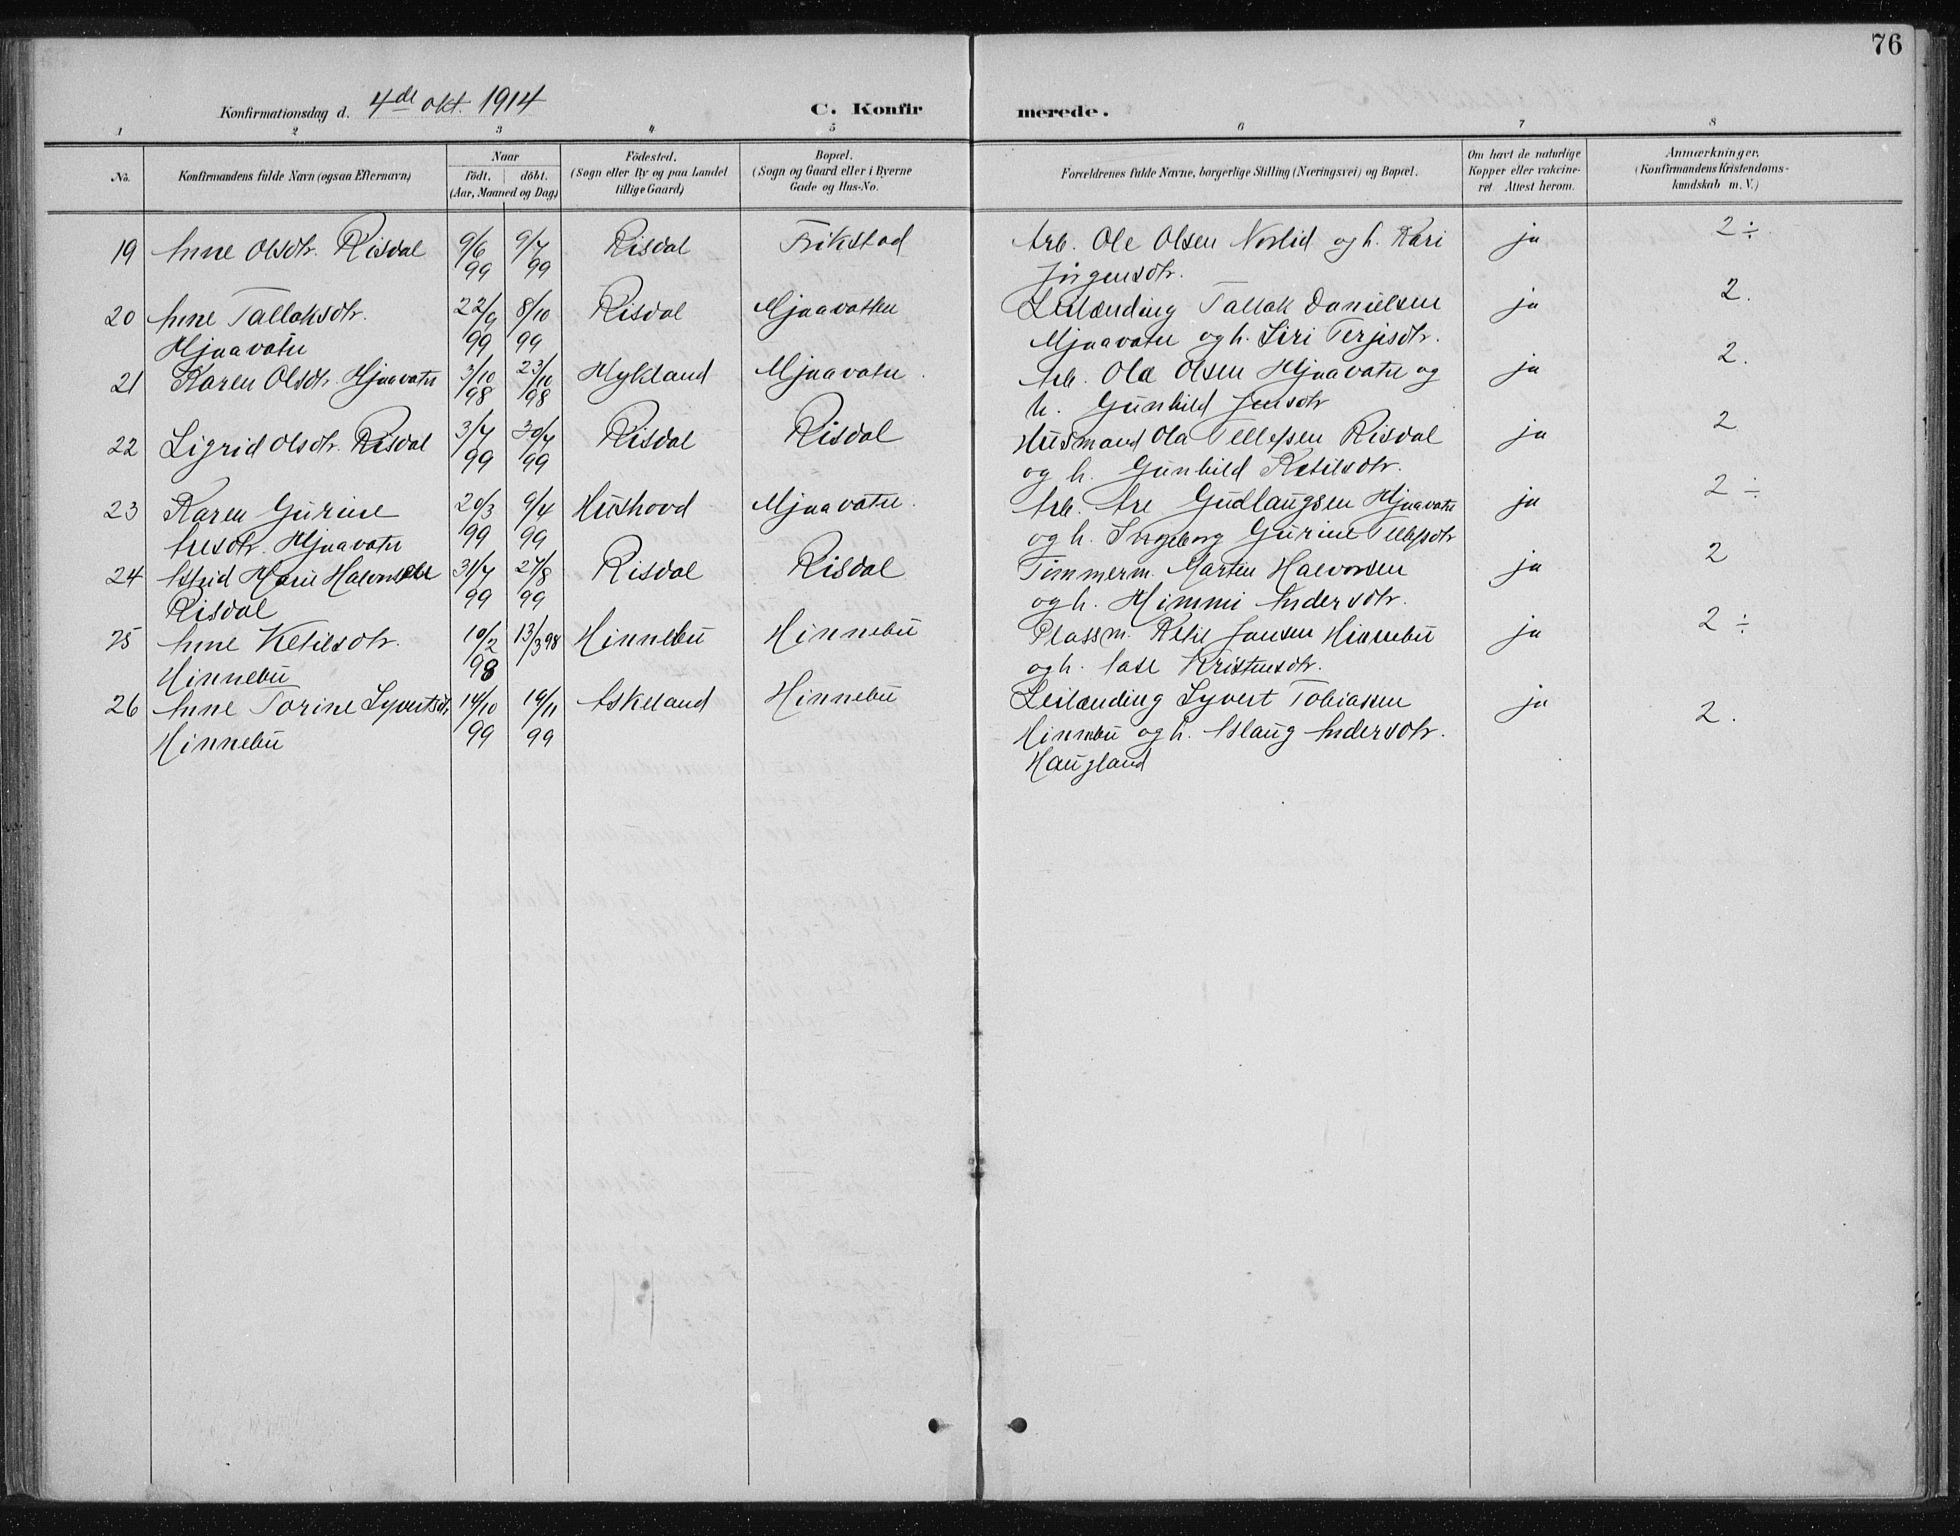 76
Konfirmationsdag d. 4de okt. 1914
C. Konfirmerede.
1 2 3 4 5 6 7 8
No. Konfirmandens fulde Navn (ogsaa Efternavn) Naar Födt. döbt. (Aar, Maaned og Dag) Födested. (Sogn eller By og paa Landet tillige Gaard) Bopæl. (Sogn og Gaard eller i Byerne Gade og Hus-No. Forældrenes fulde Navne, borgerlige Stilling (Næringsvei) og Bopæl. Om havt de naturlige Kopper eller vakcineret. Attest herom. Anmærkninger. (Konfirmandens Kristendomskundskab m. V.)
19 Anne Olsdtr. Risdal 9/6 99 9/7 99 Risdal Frikstad Arb. Ole Olsen Norlid og h. Kari ja 2÷.
Jörgensdtr.
20 Anne Tallaksdtr. 22/9 99 8/10 99 Risdal Mjaavatn Leilænding Tallak Danielsen ja 2.
Mjaavatn Mjaavatn og h. Siri Terjesdtr.
21 Karen Olsdtr. Mjaavatn 3/10 98 23/10 98 Mykland Mjaavatn. Arb. Ola Olsen Mjaavatn og ja 2.
h. Gunhild Jensdtr
22 Sigrid Olsdtr. Risdal 3/7 99 30/7 99 Risdal Risdal Husmand Ola Tellefsen Risdal ja 2
og h. Gunhild Ketilsdtr.
23 Karen Gurine 20/3 99 9/4 99 Hushovd Mjaavatn. Arb. Are Gudlaugsen Mjaavatn ja 2÷
Aresdtr. Mjaavatn og h. Ingeborg Gurine Tellefsdtr
24 Astrid Marie 31/7 99 27/8 99 Risdal Risdal Timmerm. Marten Halvorsen ja 2
Risdal og h. Mimmi Andersdtr.
25 Anne Ketilsdtr. 10/2 98 13/3 98 Hinnebu Hinnebu Plassm. Ketil Jansen Hinnebu ja 2÷
Hinnebu og h. Aase Kristensdtr.
26 Anne Torine Syvertsdtr 14/10 99 19/11 99 Askeland Hinnebu Leilænding Syvert Tobiasen ja 2.
Hinnebu Hinnebu og h. Aslaug Andersdtr.
Haugland